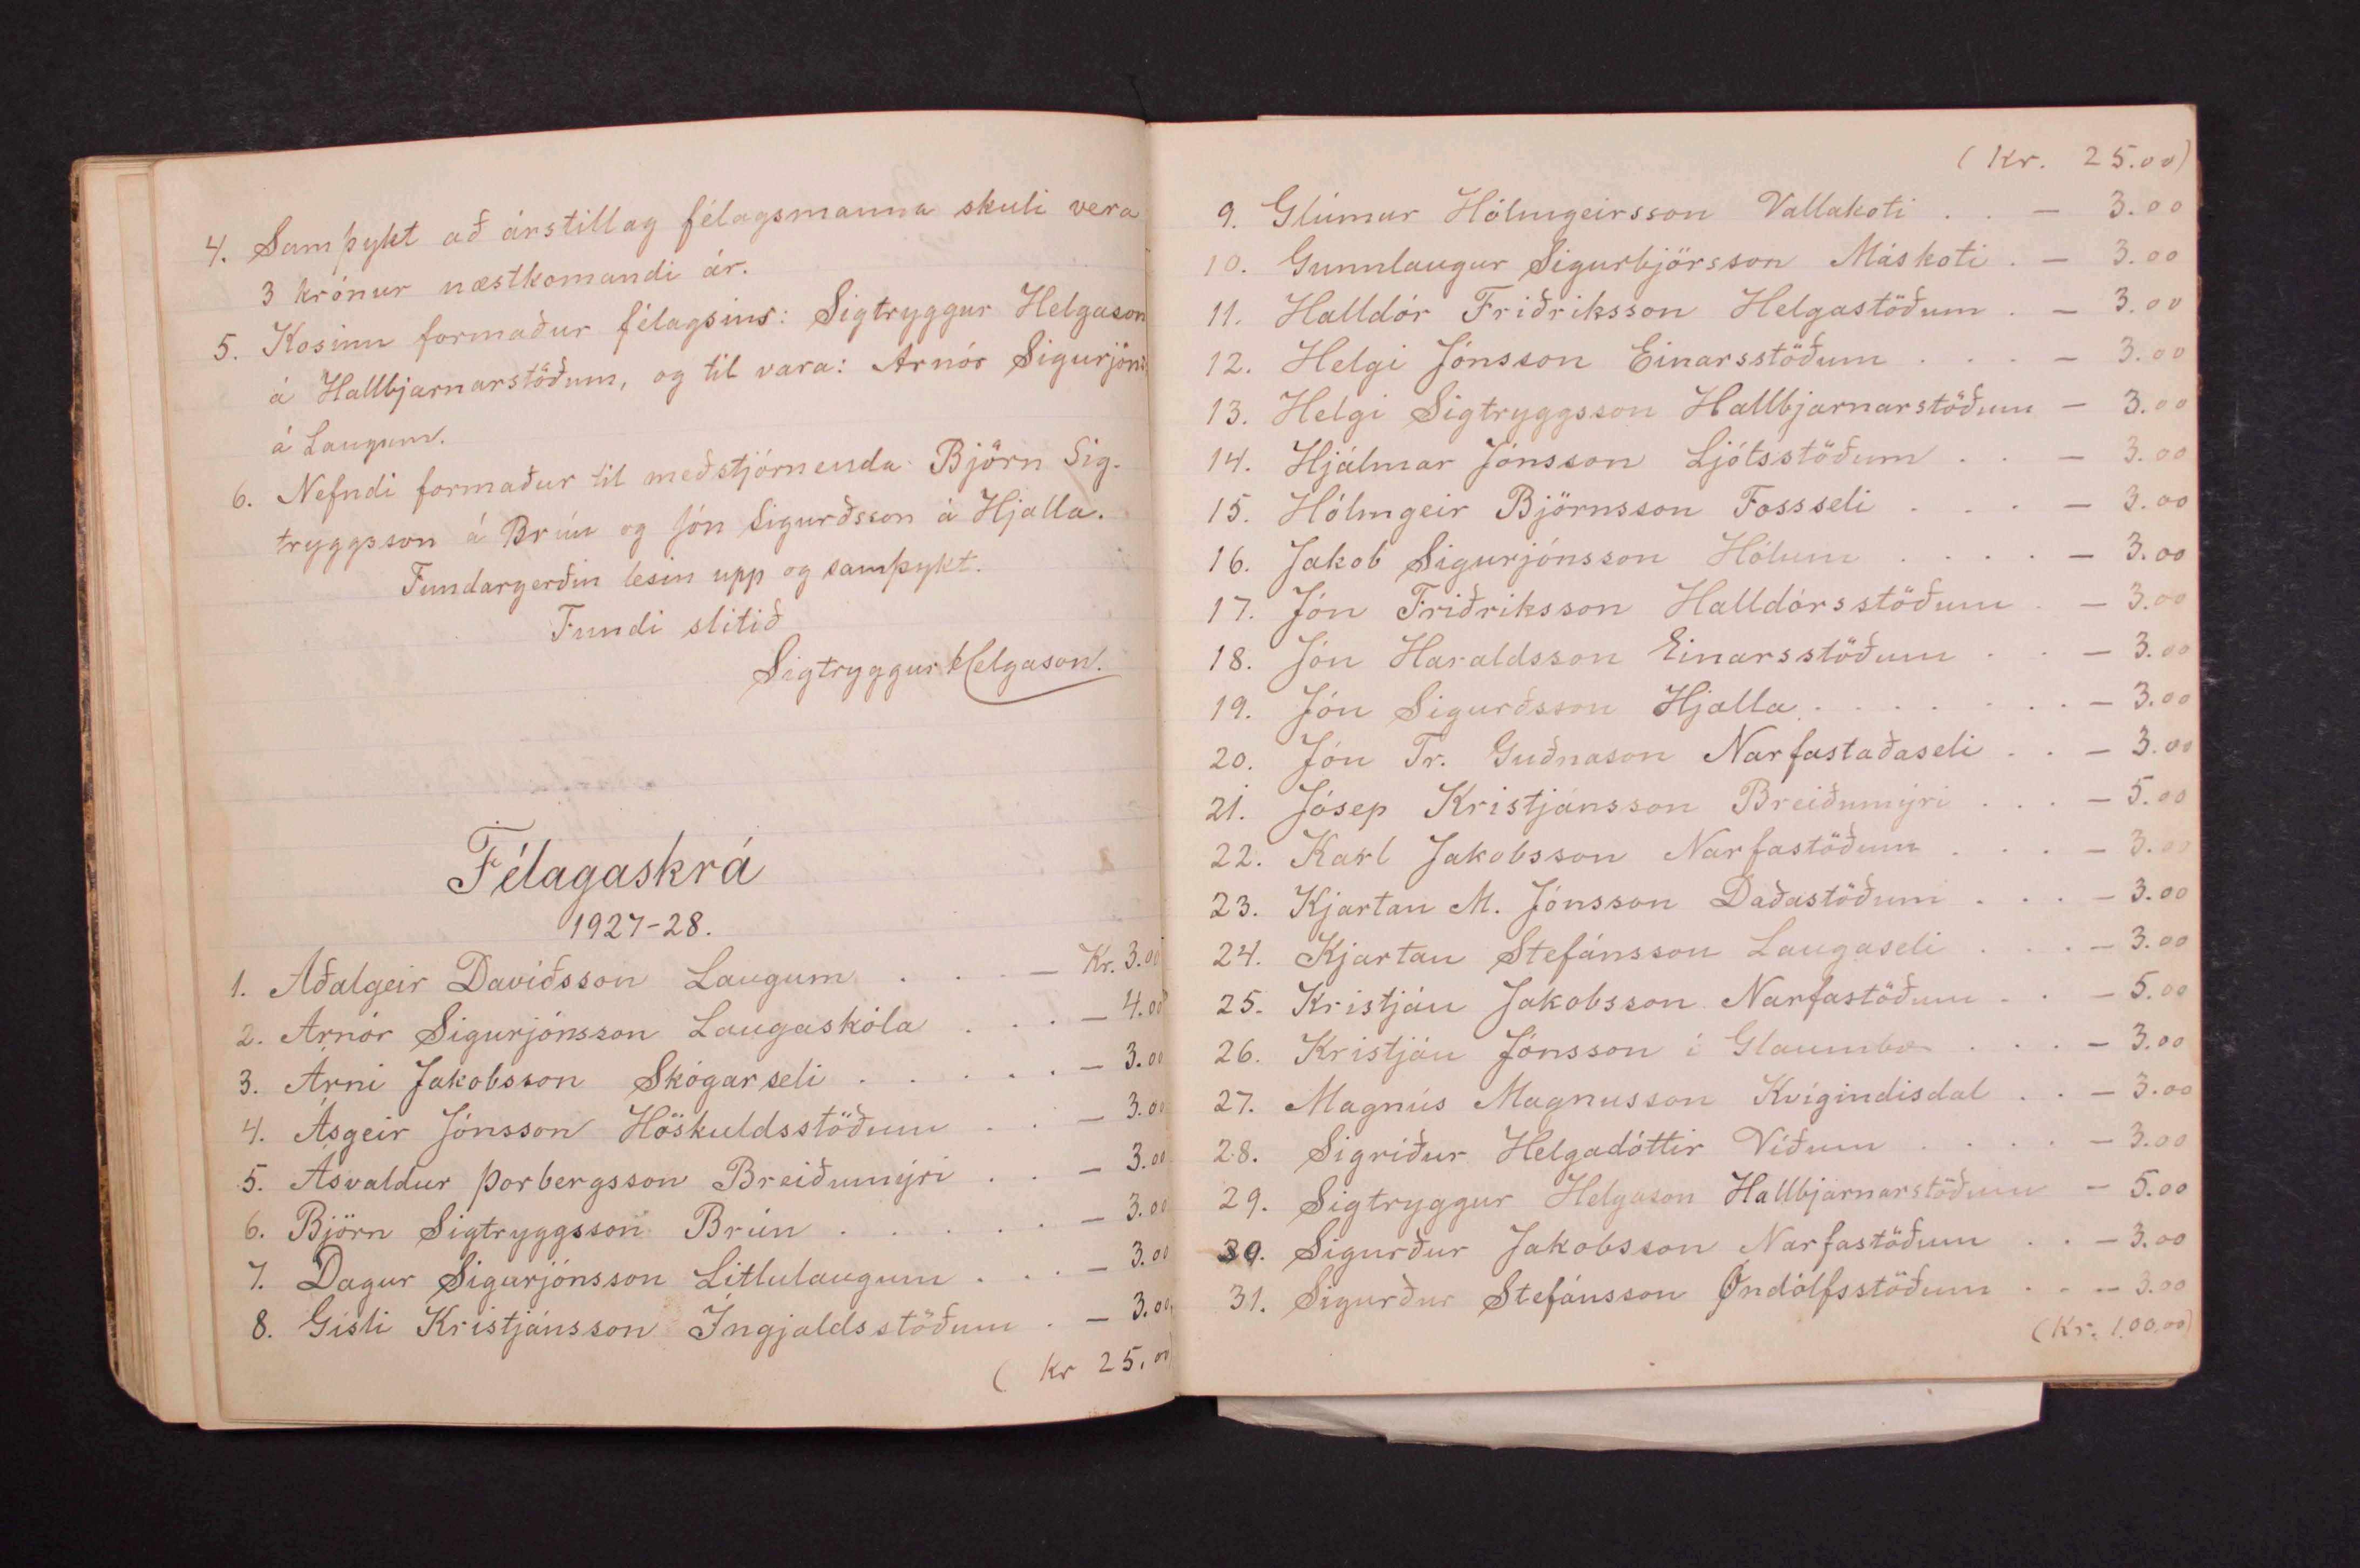 4. Samþykt að árstillag félagsmanna skuli vera
3 krónur næstkomandi ár.
5. Kosinn formaður félagsins: Sigtryggur Helgason
á Hallbjarnarstöðum, og til vara: Arnór Sigurjóns
á Laugum.
6. Nefndi formaður til meðstjórnenda Björn Sig-
tryggsson á Brún og Jón Sigurðsson á Hjalla.
Fundargerðin lesin upp og samþykt.
Fundi slitið
Sigtryggur Helgason.
Félagaskrá
1927-28.
1. Aðalgeir Davíðsson Laugum . . . — Kr. 3.00
2. Arnór Sigurjónsson Laugaskóla . . . — 4.00
3. Árni Jakobsson Skógarseli . . . . . — 3.00
4. Ásgeir Jónsson Höskuldsstöðum . . — 3.00
5. Ásvaldur Þorbergsson Breiðumýri . . — 3.00
6. Björn Sigtryggsson Brún . . . . . — 3.00
7. Dagur Sigurjónsson Litlulaugum . . . — 3.00
8. Gísli Kristjánsson Ingjaldsstöðum . — 3.00
( Kr 25.00)
( Kr. 25.00)
9. Glúmur Hólmgeirsson Vallakoti . . — 3.00
10. Gunnlaugur Sigurbjörsson Máskoti . — 3.00
11. Halldór Friðriksson Helgastöðum . — 3.00
12. Helgi Jónsson Einarsstöðum . . . — 3.00
13. Helgi Sigtryggsson Hallbjarnarstöðum — 3.00
14. Hjálmar Jónsson Ljótsstöðum . . — 3.00
15. Hólmgeir Björnsson Fossseli . . . — 3.00
16. Jakob Sigurjónsson Hólum . . . . — 3.00
17. Jón Friðriksson Halldórsstöðum . — 3.00
18. Jón Haraldsson Einarsstöðum . . — 3.00
19. Jón Sigurðsson Hjalla . . . . . . . — 3.00
20. Jón Tr. Guðnason Narfastaðaseli . . — 3.00
21. Jósep Kristjánsson Breiðumýri . . . — 5.00
22. Karl Jakobsson Narfastöðum . . . — 3.00
23. Kjartan M. Jónsson Daðastöðum . . . — 3.00
24. Kjartan Stefánsson Laugaseli . . . — 3.00
25. Kristján Jakobsson Narfastöðum . . — 5.00
26. Kristján Jónsson í Glaumbæ . . . — 3.00
27. Magnús Magnusson Kvígindisdal . . — 3.00
28. Sigríður Helgadóttir Víðum . . . . — 3.00
29. Sigtryggur Helgason Hallbjarnarstöðum — 5.00
30. Sigurður Jakobsson Narfastöðum . . — 3.00
31. Sigurður Stefánsson Öndólfsstöðum . . — 3.00
(Kr. 100.00)